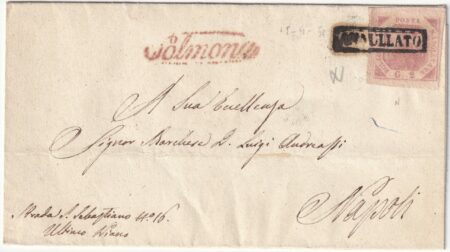 Solmona
ANNULLATO
POSTA
G. 2
A Sua Eccellenza
Signor Marchese D. Luigi Andreassi
Napoli
Strada S. Sebastiano N.o 16.
Ultimo Piano